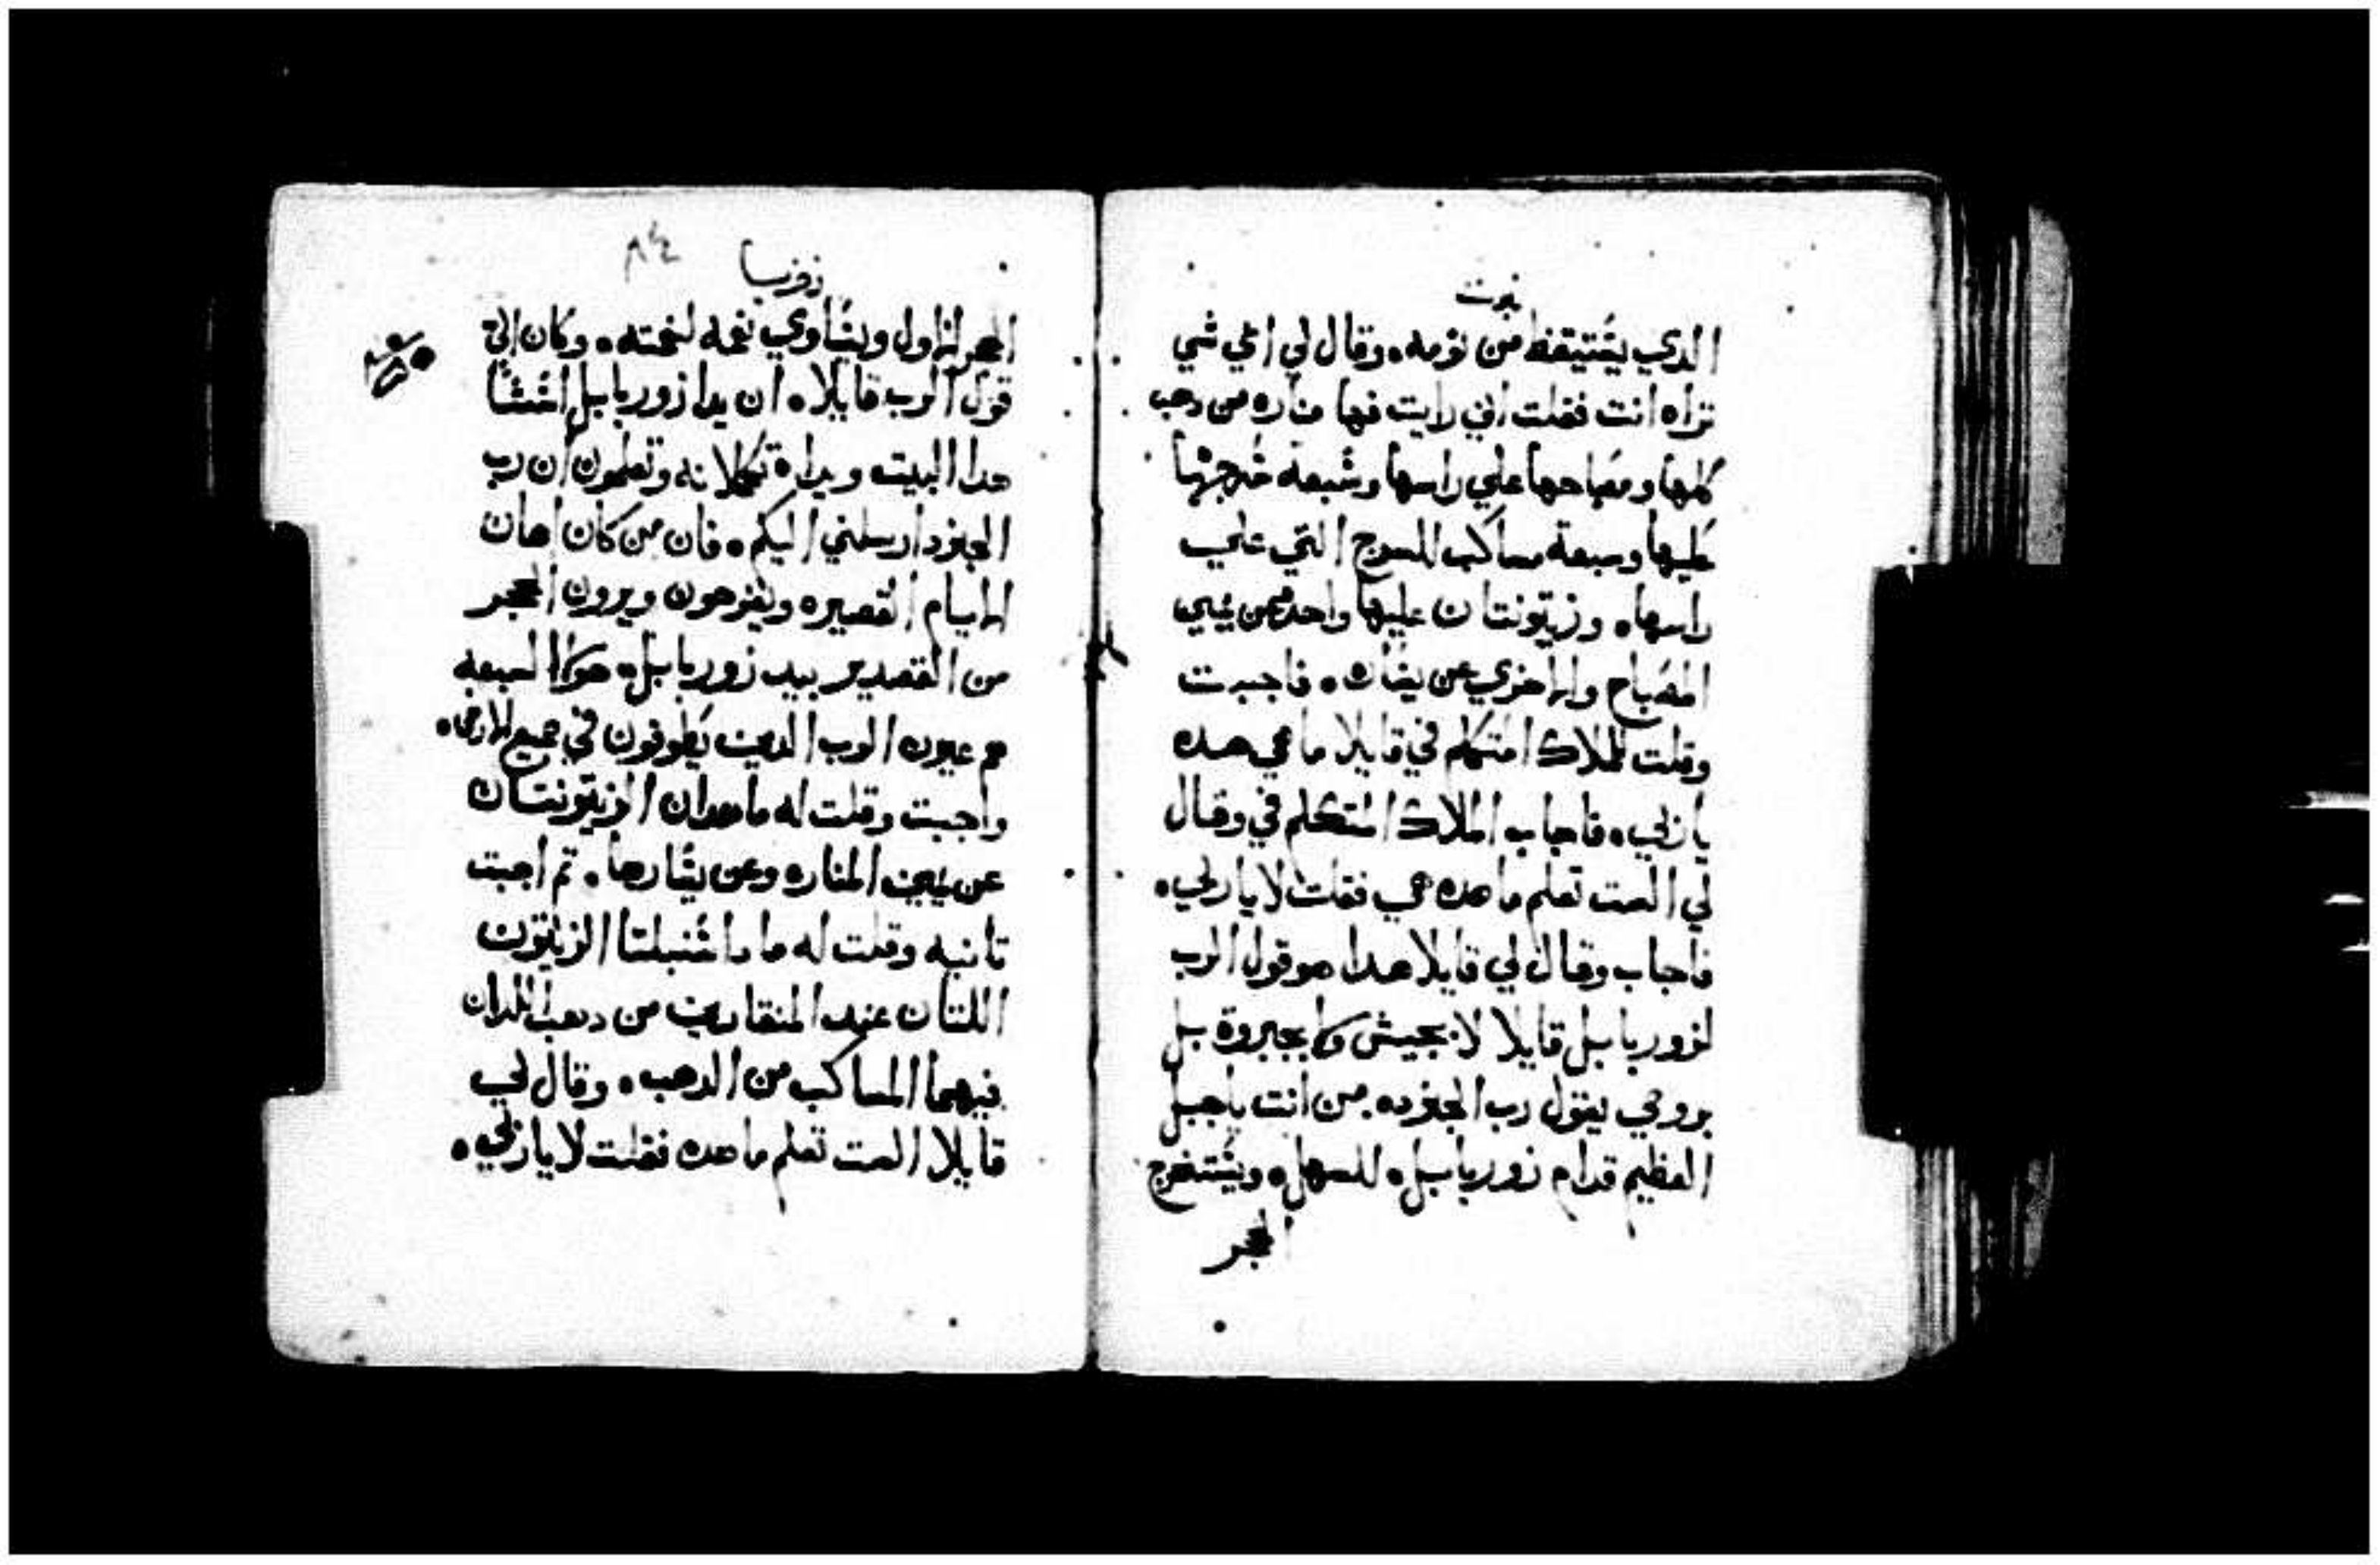 نبوت
الدي يستيقظ من نومه وقال لي اي شي
تراه انت فقلت اني رايت فها مناره من دهب
كلها ومصباحها علي راسها وسبعة سرجها
عليها وسبعة مساكب للسرج التي علي
راسها وزيتونتان عليها واحده من يمين
المصباح والاخري عن يساره فاجبت
وقلت للملاك المتكلم في قايلا ما هي هده
يا ربي فاجاب الملاك المتكلم في وقال
لي الست تعلم ما هده هي فقلت لا يا ربي
فاجاب وقال لي قايلا هدا هو قول الرب
لزوربابل قايلا لا بجيش ولا بجبروة بل
بروحي يقول رب الجنود من انت يا جبل
العظيم قدام زوربابل للسهل ويستخرج
الحجر
زخريا
٨٤
الحجر الاول ويساوي نعمه لنعمته وكان الي
قول الرب قايلا ان يدا زوربابل اسستا
هدا البيت ويداه تكملانه وتعلمون ان رب
الجنود ارسلني اليكم فان من كان اهان
الايام القصيره ويفرحون ويرون الحجر
من القصدير بيد زوربابل هولا السبعه
هم عيون الرب الدين يطوفون في جميع الارض
واجبت وقلت له ما هدان الزيتونتان
عن يمين المناره وعن يسارها تم اجبت
تانيه وقلت له ما دا سنبلتا الزيتون
اللتان عند المنقارين من دهب اللدان
فيهما المساكب من الدهب وقال لي
قايلا الست تعلم ما هده فقلت لا يا ربي